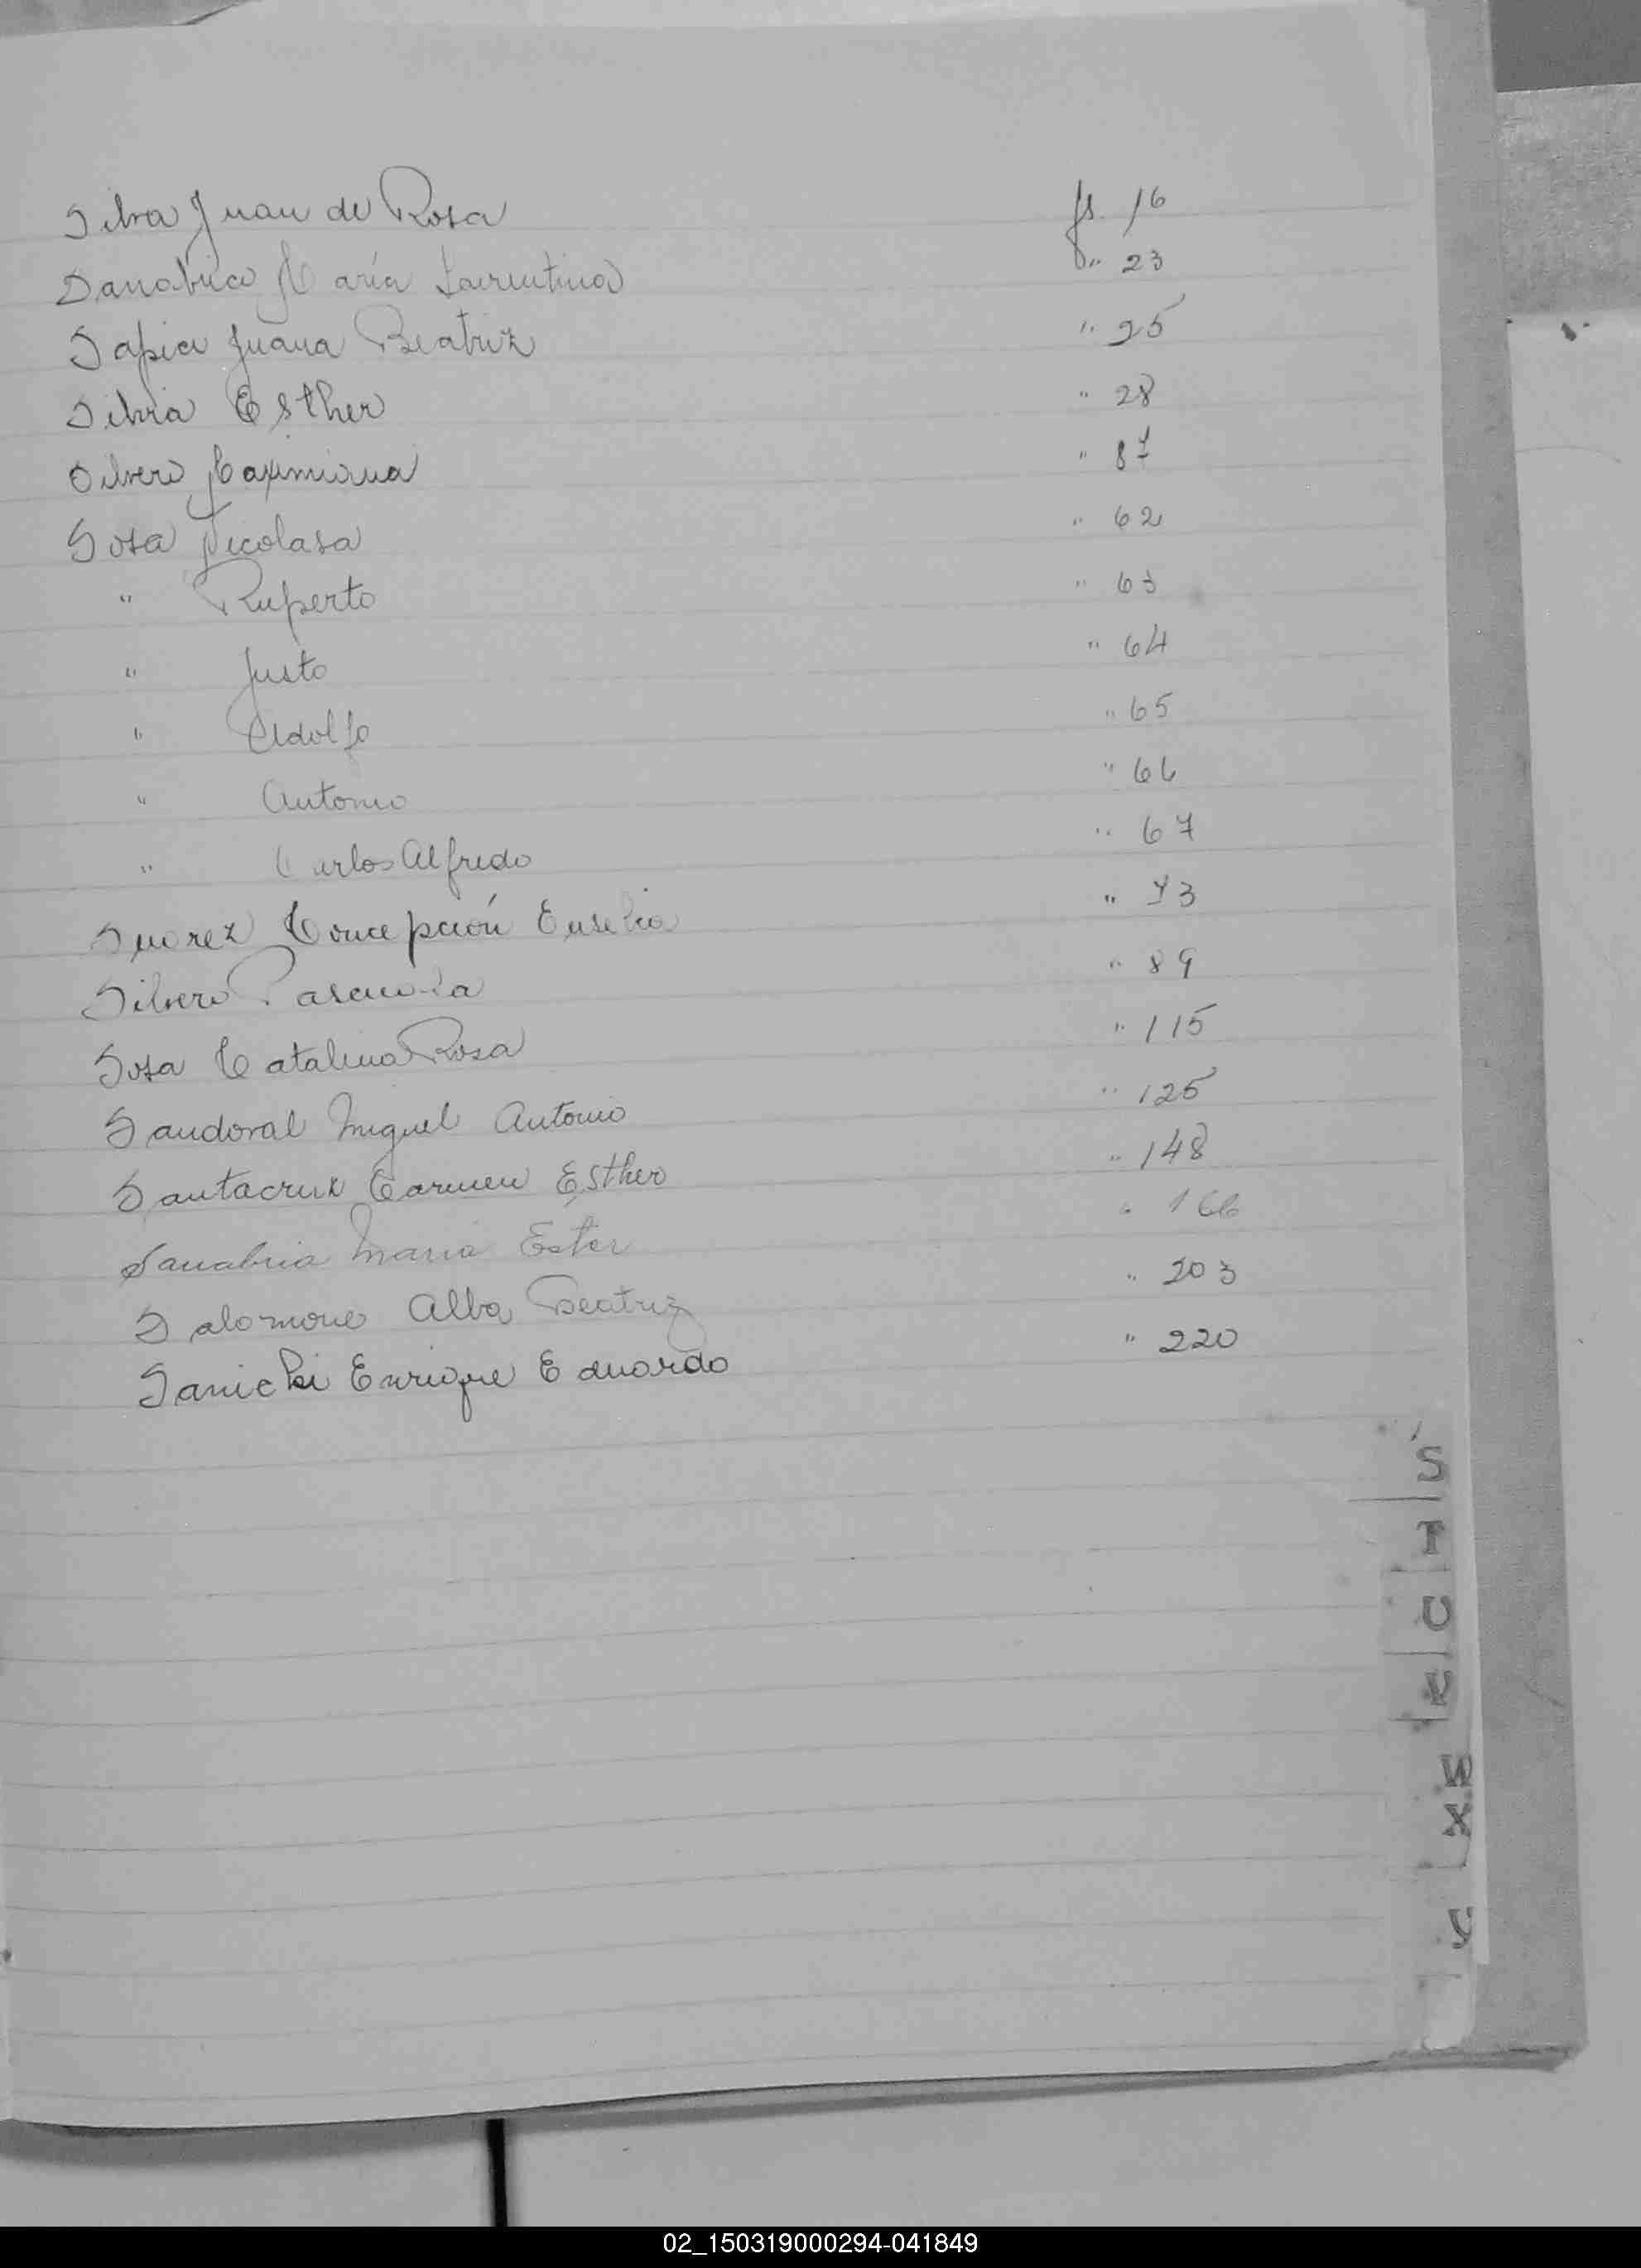 Silva Juan de Rosa fs. 16
Sanabria María Laurentina " 23
Sapia Juana Beatriz " 25
Silvia Esther " 28
Silvero Maximiana " 87
Sosa Nicolasa " 62
" Ruperto " 63
" Justo " 64
" Adolfo " 65
" Antonio " 66
" Carlos Alfredo " 67
Suarez Concepción Eusebia " 73
Silvero Pascuala " 89
Sosa Catalina Rosa " 115
Sandoval Miguel Antonio " 125
Santacruz Carmen Esther " 148
Sanabria Maria Ester " 166
Salomone Alba Beatriz " 203
Sanicki Enrique Eduardo " 220
S
T
W
X
02_150319000294-041849